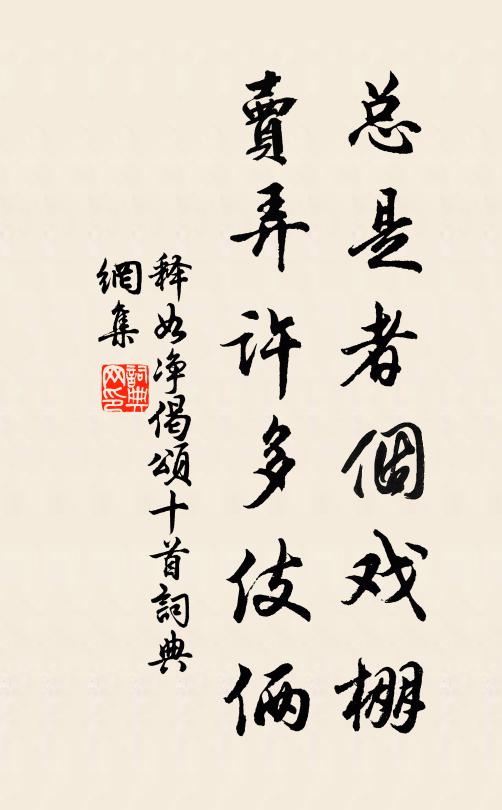 总是者個戏棚
賣弄许多伎俩
释如净偈頌十首詞典
網集
詞典
网印